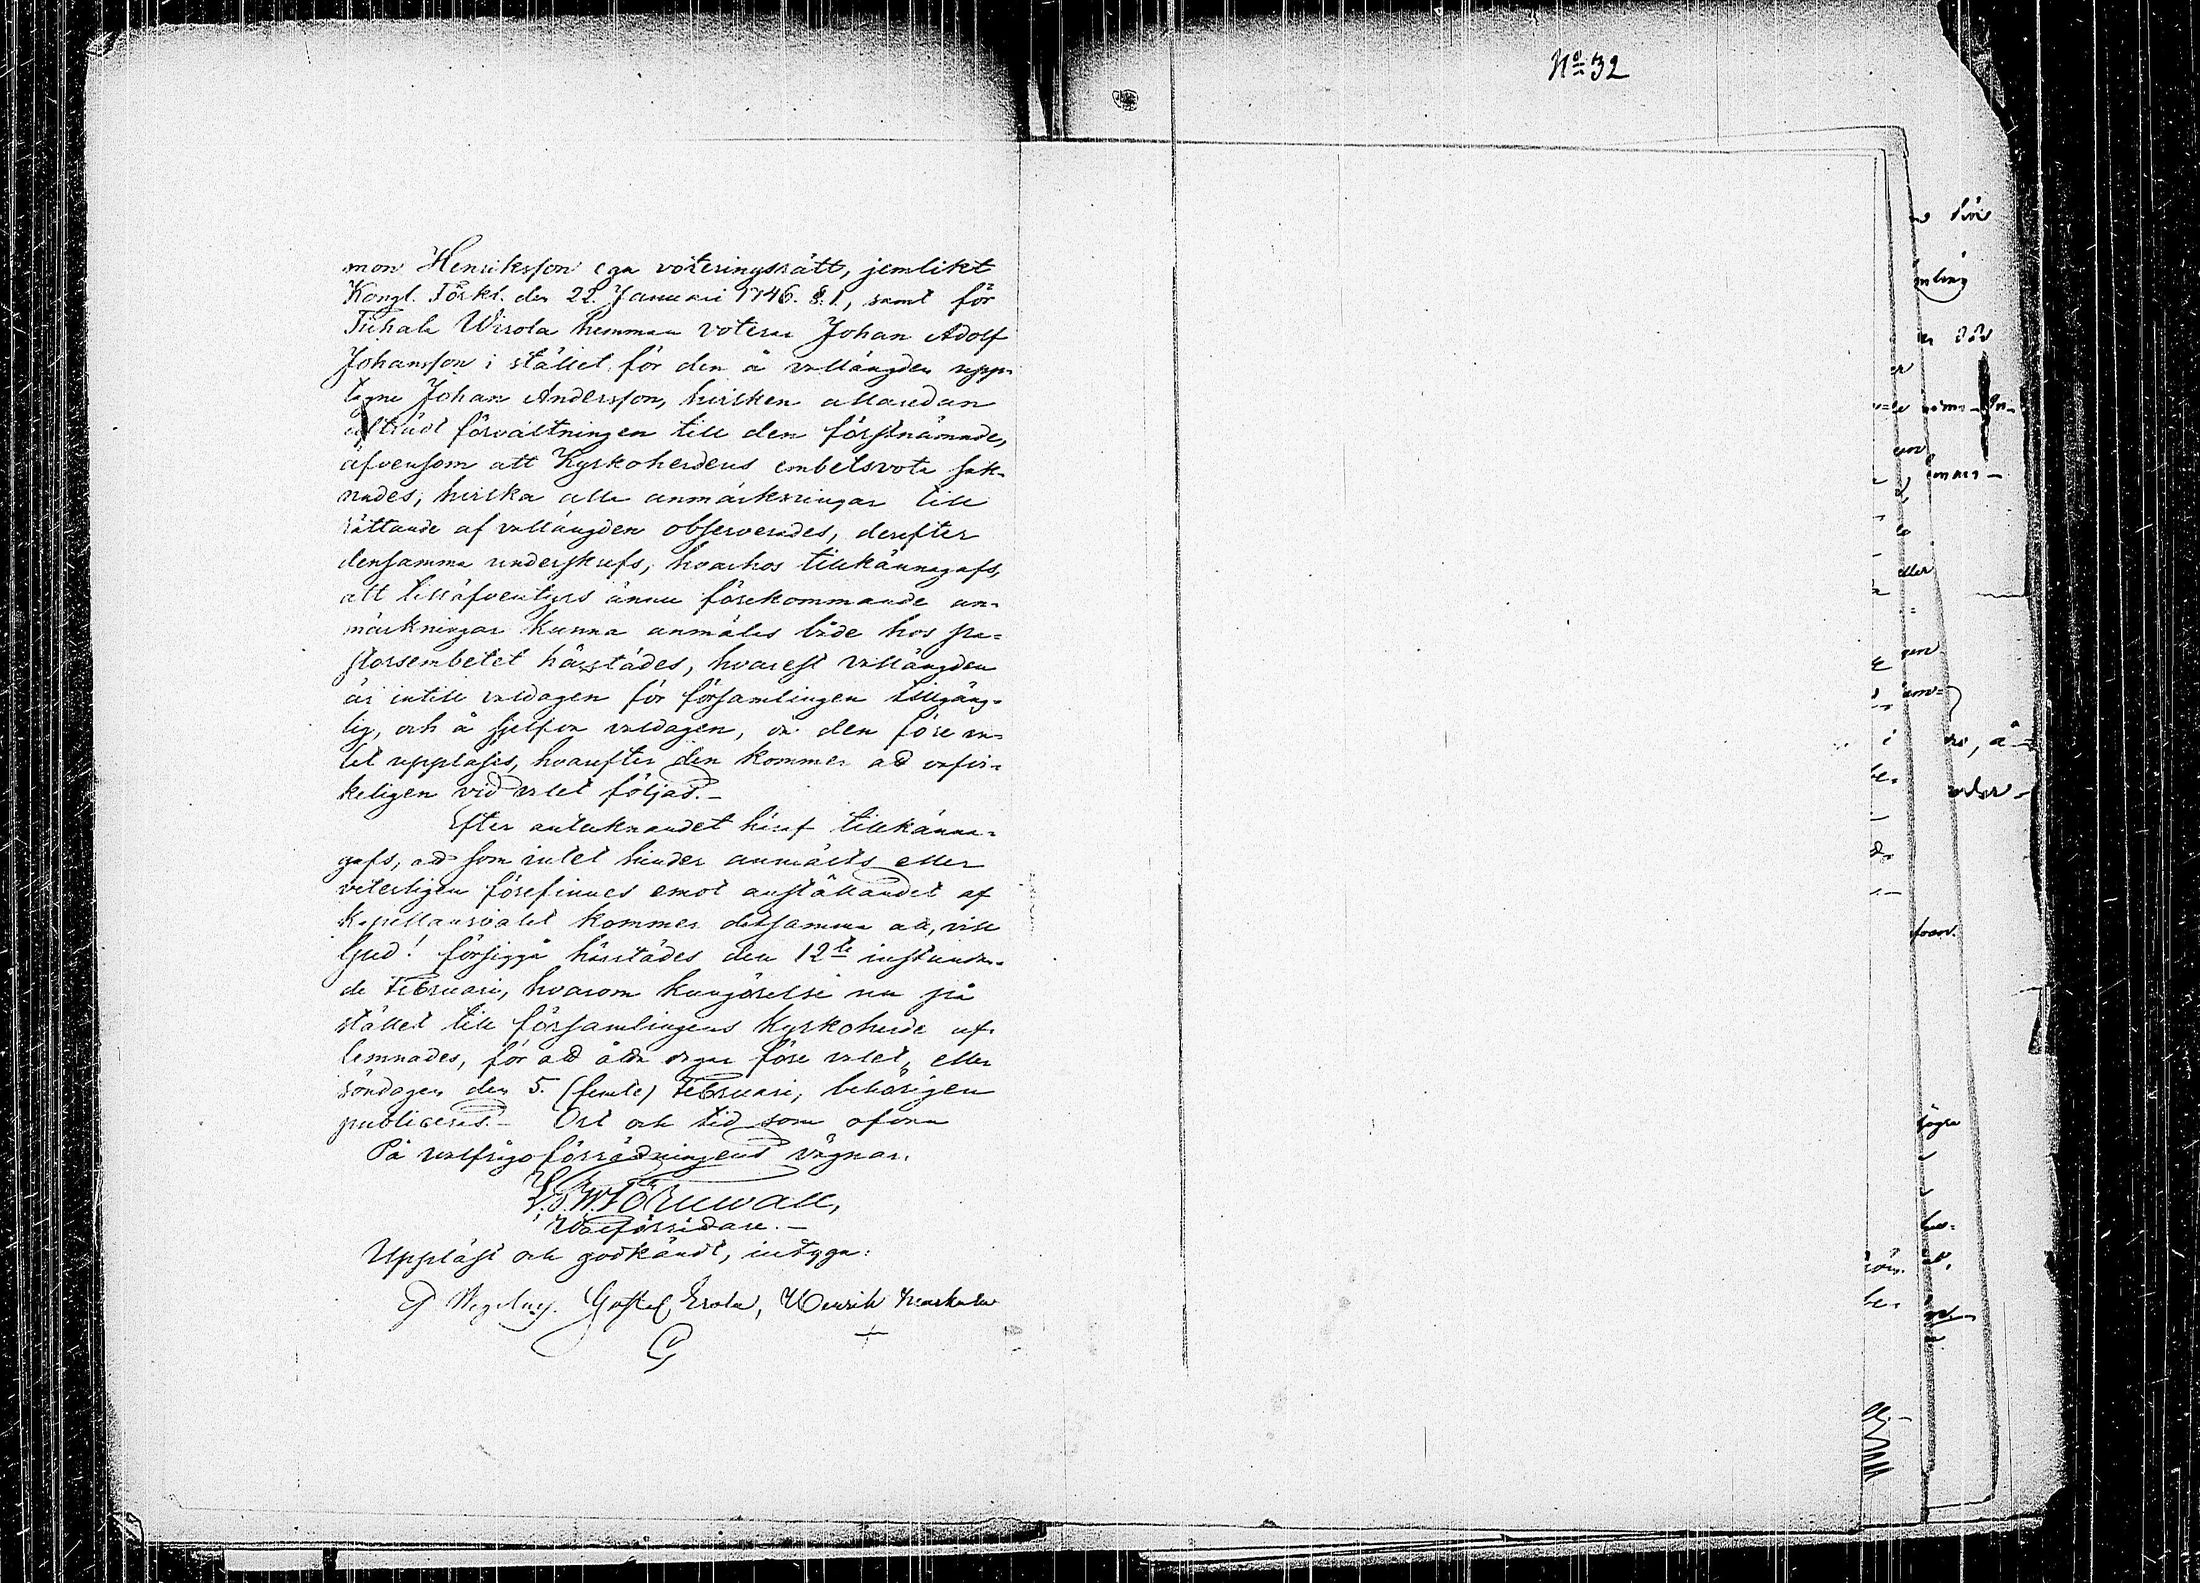 No 32
mon Henriksson ega voteringsrätt, jemlikt
Kongl. Förkl. den 22. Januari 1746. §. 1, samt för
Wirola hemman votera Johan Adolf
Johansson i stället för den å vallängden upp-
tagne Johan Andersson, hvilken allaredan
afträdt förvaltningen till den förstnämnde,
äfvensom att Kyrkoherdens embetsvota sak-
nades; hvilka alla anmärkningar till
rättande af vallängden observerades, derefter
densamma underskrefs, hvarhos tillkännagafs,
att tilläfventyrs ännu förekommande an-
märkningar kunna anmälas både hos pa-
storsembetet härstädes, hvarest vallängden
är intill valdagen för församlingen tillgäng-
lig, och å sjelfva valdagen, då den före va-
let uppläses, hvarefter den kommer att oafvi-
keligen vid valet följas.–
Efter antecknandet häraf tillkänna-
gafs, att som intet hinder anmälts eller
veterligen förefinnes emot anställandet af
kapellansvalet kommer detsamma att, vill
Gud! försiggå härstädes den 12te instundan-
de Februari, hvarom kungörelse nu på
stället till församlingens Kyrkoherde af-
lemnades, för att åtta dagar före valet, eller
söndagen den 5. (femte) Februari, behörigen
publiceras.– Ort och tid som ofvan
På valförrättningens vägnar:
Törnwall,
Valförrättare.–
Uppläst och godkändt, intyga:
Gustaf Erola, Henrik